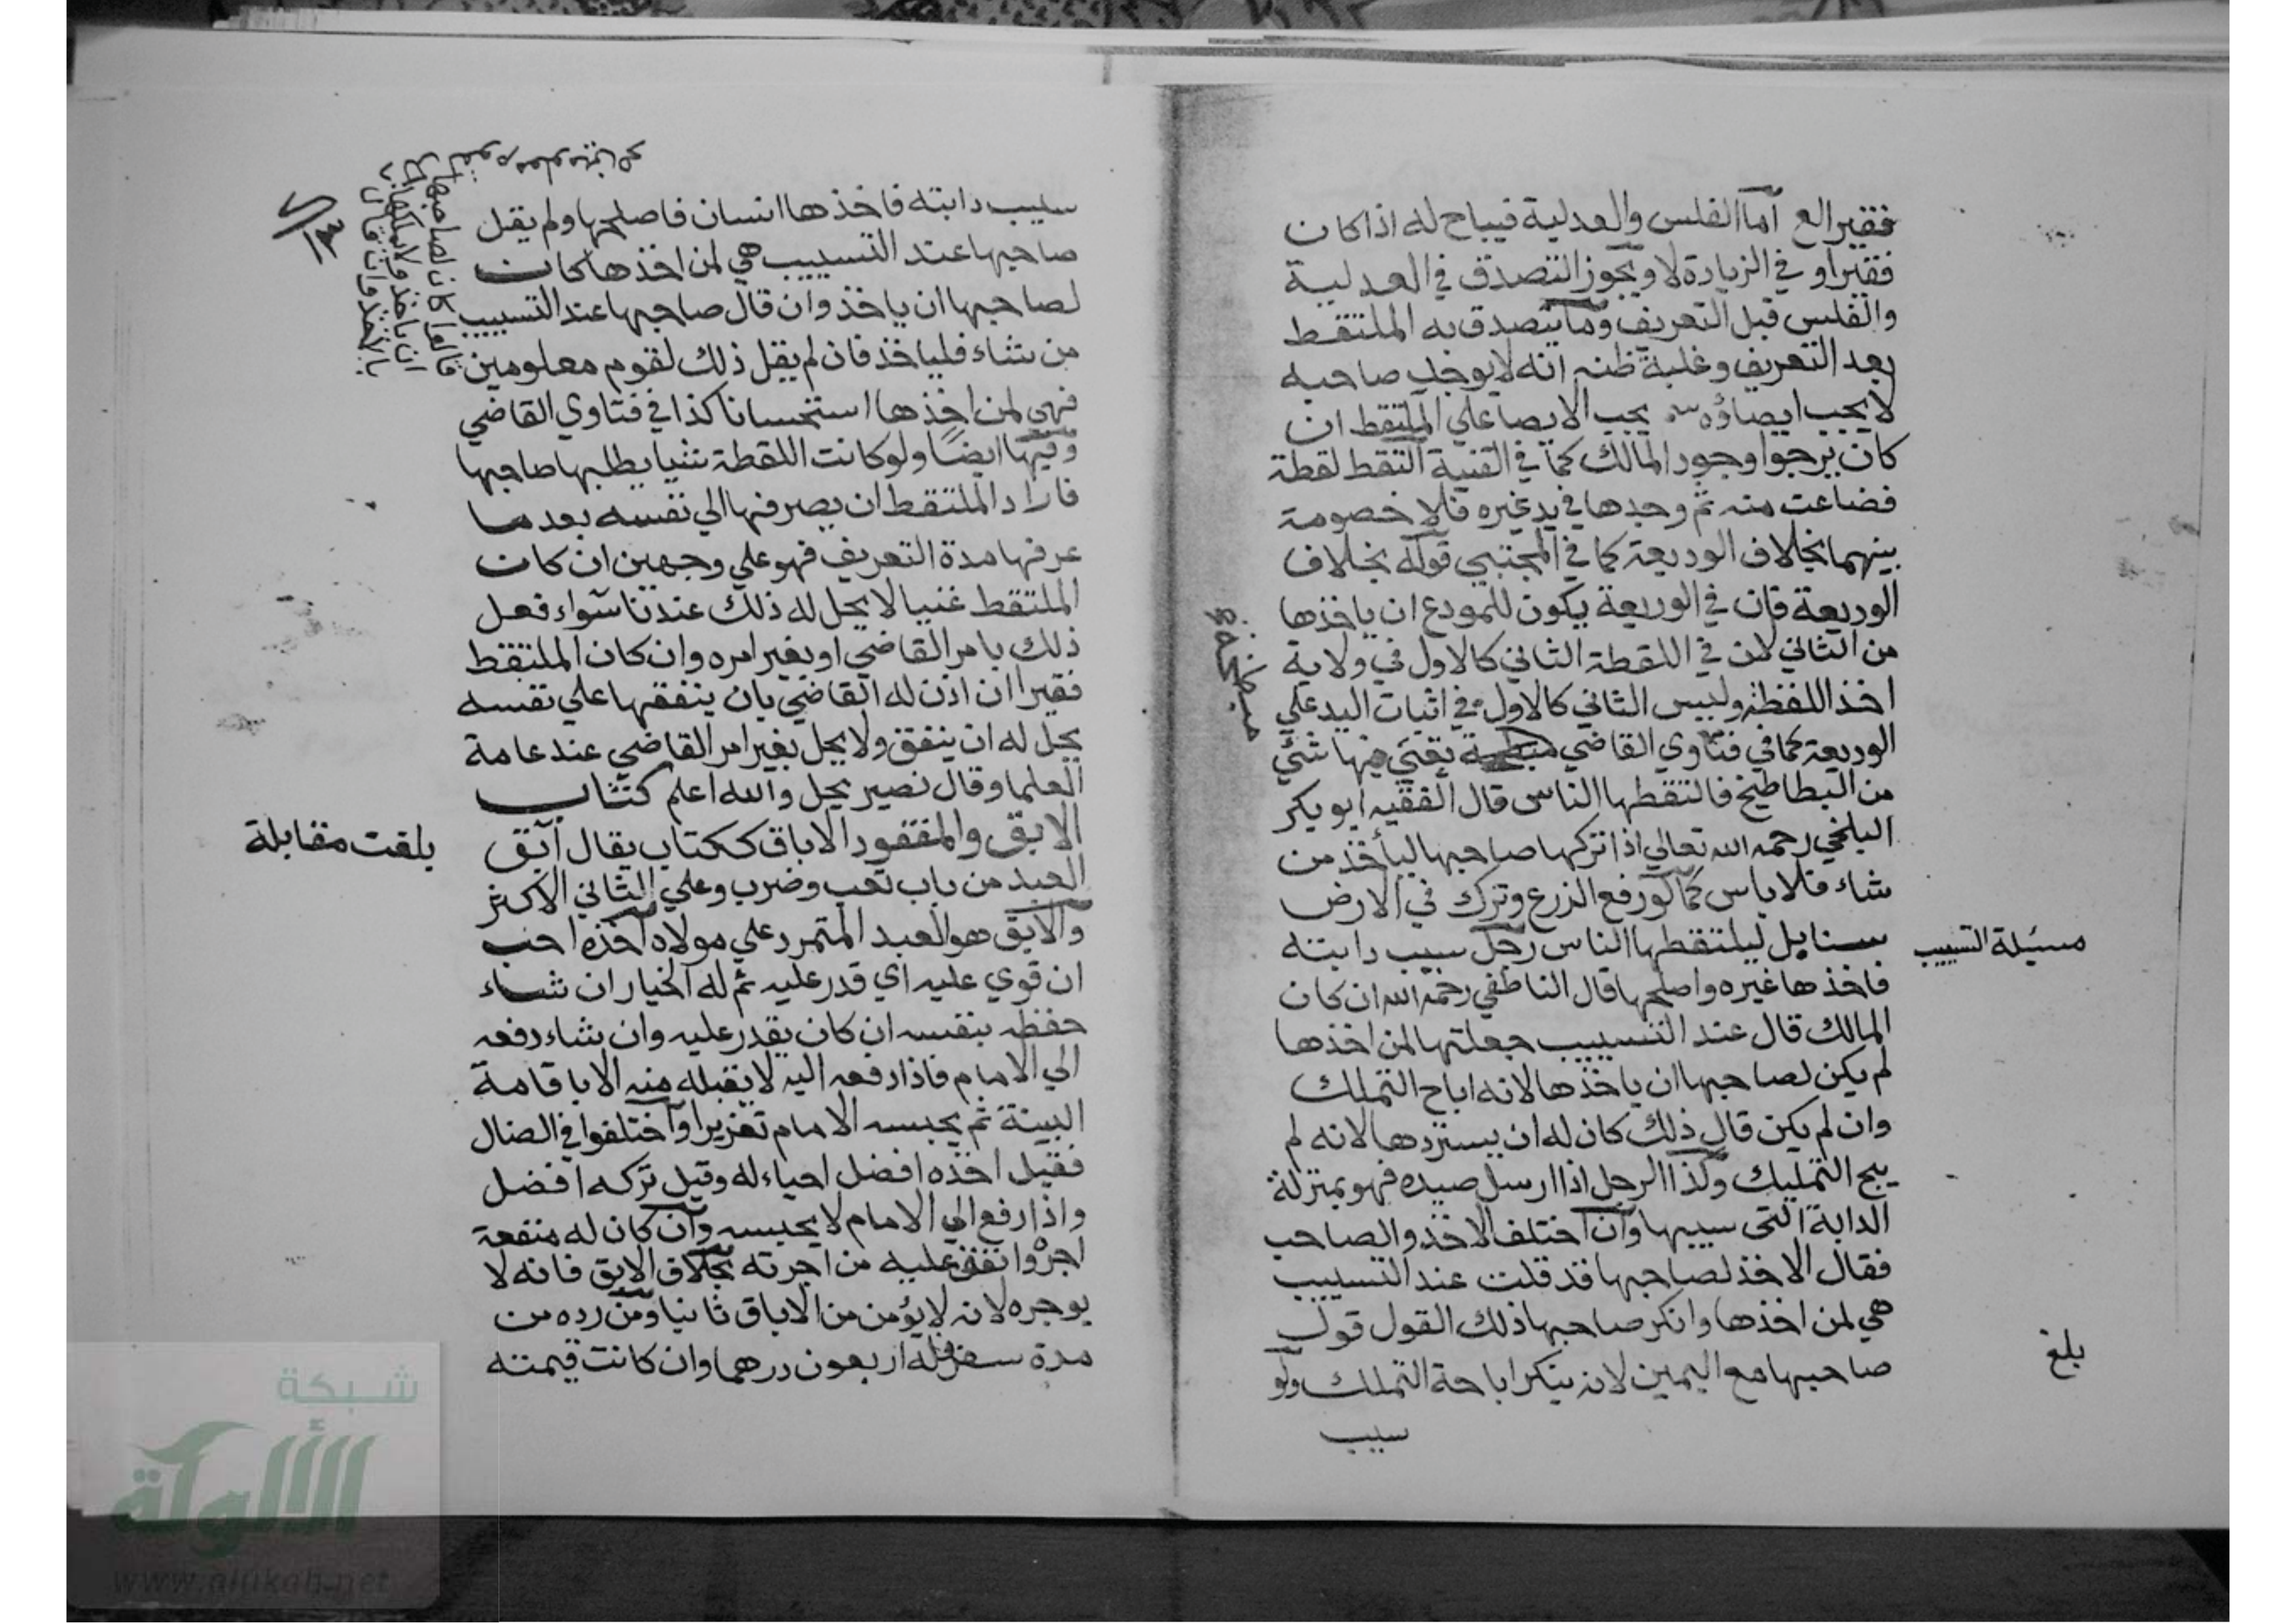 فقير الع أما الفلس والعدلية فيباح له اذا كان
فقيرا و في الزيادة لا ويجوز التصدق في العدلية
والفلس قبل التعريف وما يتصدق به الملتقط
بعد التعريف وغلبة ظنه انه لا يوجد صاحبه
لا يجب ايصاؤه يجب الايصا علي الملتقط ان
كان يرجوا وجود المالك كما في القنية التقط لقطة
فضاعت منه ثم وجدها في يد غيره فلا خصومة
بينهما بخلاف الوديعة كما في المجتبي قوله بخلاف
الوديعة فان في الوديعة يكون للمودع ان ياخذها
من الثاني لان في اللقطة الثاني كالاول في ولاية
اخذ اللقطة وليس الثاني كالاول في اثبات اليد علي
الوديعة كما في فتاوي القاضي مبطخة بقي فيها شئي
من البطاطيخ فالتقطها الناس قال الفقيه ابو بكر
البلخي رحمه الله تعالي اذا تركها صاحبها ليأخذ من
شاء فلا باس كما لو رفع الزرع وترك في الارض
سنابل ليلتقطها الناس رجل سيب دابته
فاخذها غيره واصلحها قال الناطفي رحمه الله ان كان
المالك قال عند التسييب جعلتها لمن اخذها
لم يكن لصاحبها ان ياخذها لانه اباح التملك
وان لم يكن قال ذلك كان له ان يستردها لانه لم
يبح التمليك وكذا الرجل اذا ارسل صيده فهو بمنزلة
الدابة التي سيبها وان اختلف الاخذ والصاحب
فقال الاخذ لصاحبها قد قلت عند التسييب
هي لمن اخذها وانكر صاحبها ذلك القول قول
صاحبها مع اليمين لانه ينكر اباحة التملك ولو
سيب
مسئلة التسييب
بلغ
مبطخة
سيب دابته فاخذها انسان فاصلحها ولم يقل
صاحبها عند التسييب هي لمن اخذها كان
لصاحبها ان ياخذ وان قال صاحبها عند التسييب
من شاء فلياخذ فان لم يقل ذلك لقوم معلومين
فهي لمن اخذها استحسانا كذا في فتاوي القاضي
وفيها ايضا ولو كانت اللقطة شيا يطلبها صاحبها
فاراد الملتقط ان يصرفها الي نفسه بعد ما
عرفها مدة التعريف فهو علي وجهين ان كان
الملتقط غنيا لا يحل له ذلك عندنا سواء فعل
ذلك بامر القاضي او بغير امره وان كان الملتقط
فقيرا ان اذن له القاضي بان ينفقها علي نفسه
يحل له ان ينفق ولا يحل بغير امر القاضي عند عامة
العلما وقال نصير يحل والله اعلم كتاب
الابق والمفقود الاباق ككتاب يقال آبق
العبد من باب تعب وضرب وعلي الثاني الاكثر
والآبق هو العبد المتمرد علي مولاه أخذه احب
ان قوي عليه اي قدر عليه ثم له الخيار ان شاء
حفظه بنفسه ان كان يقدر عليه وان شاء دفعه
الي الامام فاذا دفعه اليه لا يقبله منه الا باقامة
البينة ثم يحبسه الامام تعزيرا واختلفوا في الضال
فقيل اخذه افضل احياء له وقيل تركه افضل
واذا رفع الي الامام لا يحبسه وان كان له منفعة
اجره وانفق عليه من اجرته بخلاف الابق فانه لا
يوجره لانه لا يؤمن من الاباق ثانيا ومن رده من
مدة سفر فله اربعون درهما وان كانت قيمته
بلغت مقابلة
شبكة
الألوكة
www.alukah.net